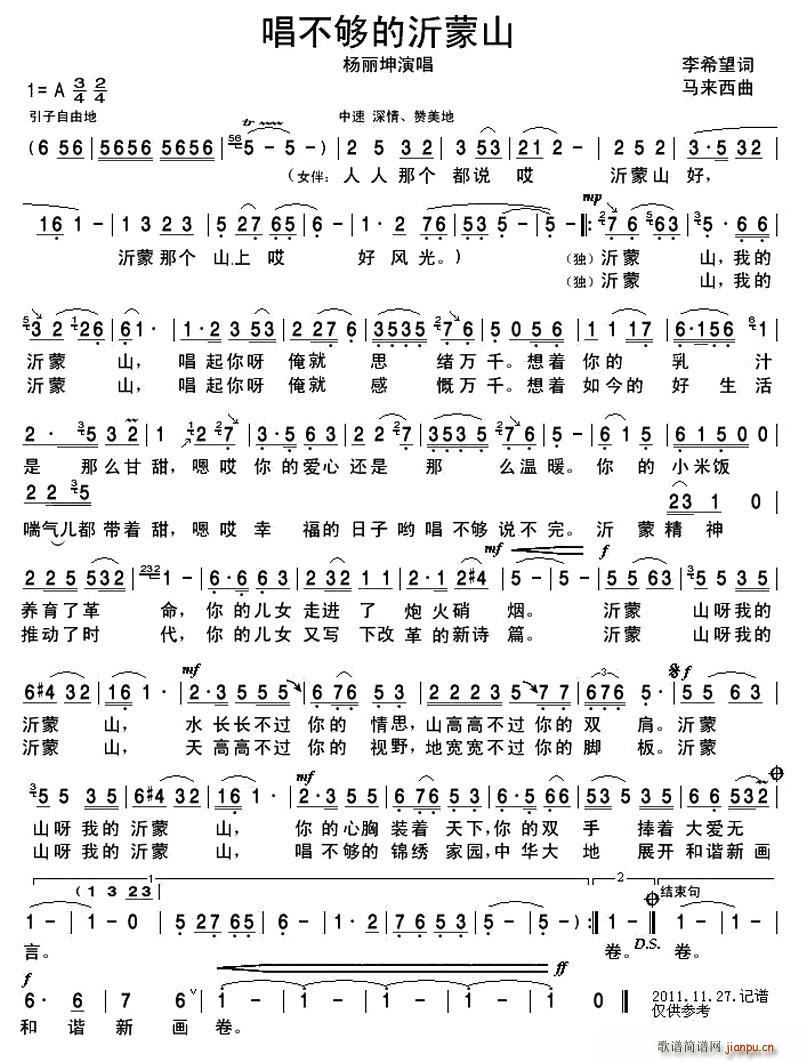 唱不够的沂蒙山
杨丽坤演唱
李希望词
1=A 3/4 2/4
马来西曲
引子自由地
中速 深情、赞美地
tr
(6 56 | 5656 5656 | 56 5 - 5 - ) | 2 5 32 | 3 53 | 21 2 - | 2 5 2 | 3·5 32 |
(女伴: 人人那个 都说 哎 沂蒙山 好,
mp
16 1 - | 1 3 23 | 5 27 65 | 6 - | 1· 2 76 | 53 5 - | 5 - |: 27 6 563 | 35· 66 |
沂蒙那个 山上 哎 好 风光。) (独) 沂蒙 山,我的
(独) 沂蒙 山,我的
53 2 126 | 61· | 1·2 3 53 | 2 27 6 | 3535 27 6 | 5 05 6 | 1 1 17 | 6·156 61 |
沂蒙 山, 唱起你呀 俺就 思 绪万千。想着 你的 乳 汁
沂蒙 山, 唱起你呀 俺就 感 慨万千。想着 如今的 好 生活
2· 35 3 2 | 1 12 27 | 3·5 6 3 | 2 2 27 | 353 5 27 6 | 6 1 5 | 6 15 0 0 |
是 那么甘 甜,嗯哎 你的爱心 还是 那 么温暖。你 的 小米饭
2 2 35
23 1 0 |
喘气儿都 带着甜,嗯哎 幸 福的日子哟唱不够 说不 完。沂 蒙精 神
mf f
2 2 5 532 | 232 1 - | 6·6 6 3 | 2 32 1 1 | 2·1 2#4 | 5 - | 5 - | 5 5 63 | 35 5 35 |
养育了革 命, 你 的儿女 走进 了 炮 火硝 烟。 沂蒙 山呀我的
推动了时 代, 你 的儿女 又写 下改 革的新诗 篇。 沂蒙 山呀我的
mf 3 f
6#4 32 | 16 1· | 2·3 5 5 5 | 6 76 5 3 | 2 2 2 3 5 7 7 | 676 5· | 5 5 63 |
沂蒙 山, 水 长长不过 你的 情思,山高高不过 你的 双 肩。沂蒙
沂蒙 山, 天 高高不过 你的 视野,地宽宽不过 你的 脚 板。沂蒙
mf
35 5 3 5 | 6#4 32 | 16 1· | 2·3 5 5 | 6 76 5 3 | 6·5 66 | 53 5 3 5 | 6 6 532 |
山呀 我的 沂蒙 山, 你 的心胸 装着 天下,你 的双 手 捧着 大爱无
山呀 我的 沂蒙 山, 唱 不够的 锦绣 家园,中 华大 地 展开 和谐新 画
1 2 结束句
(1 3 23
1 - | 1 - 0 | 5 27 65 | 6 - | 1· 2 | 76 53 | 5 - | 5 - ) :| 1 - || 1 - | 1 - |
言。 卷。 D.S. 卷。
f ff
6· 6 | 7 6 ∨ | 1 - | 1 - | 1 - | 1 - | 1 - | 1 0 ||
2011.11.27.记谱
仅供参考
和 谐 新 画 卷。
歌谱简谱网
jianpu.cn